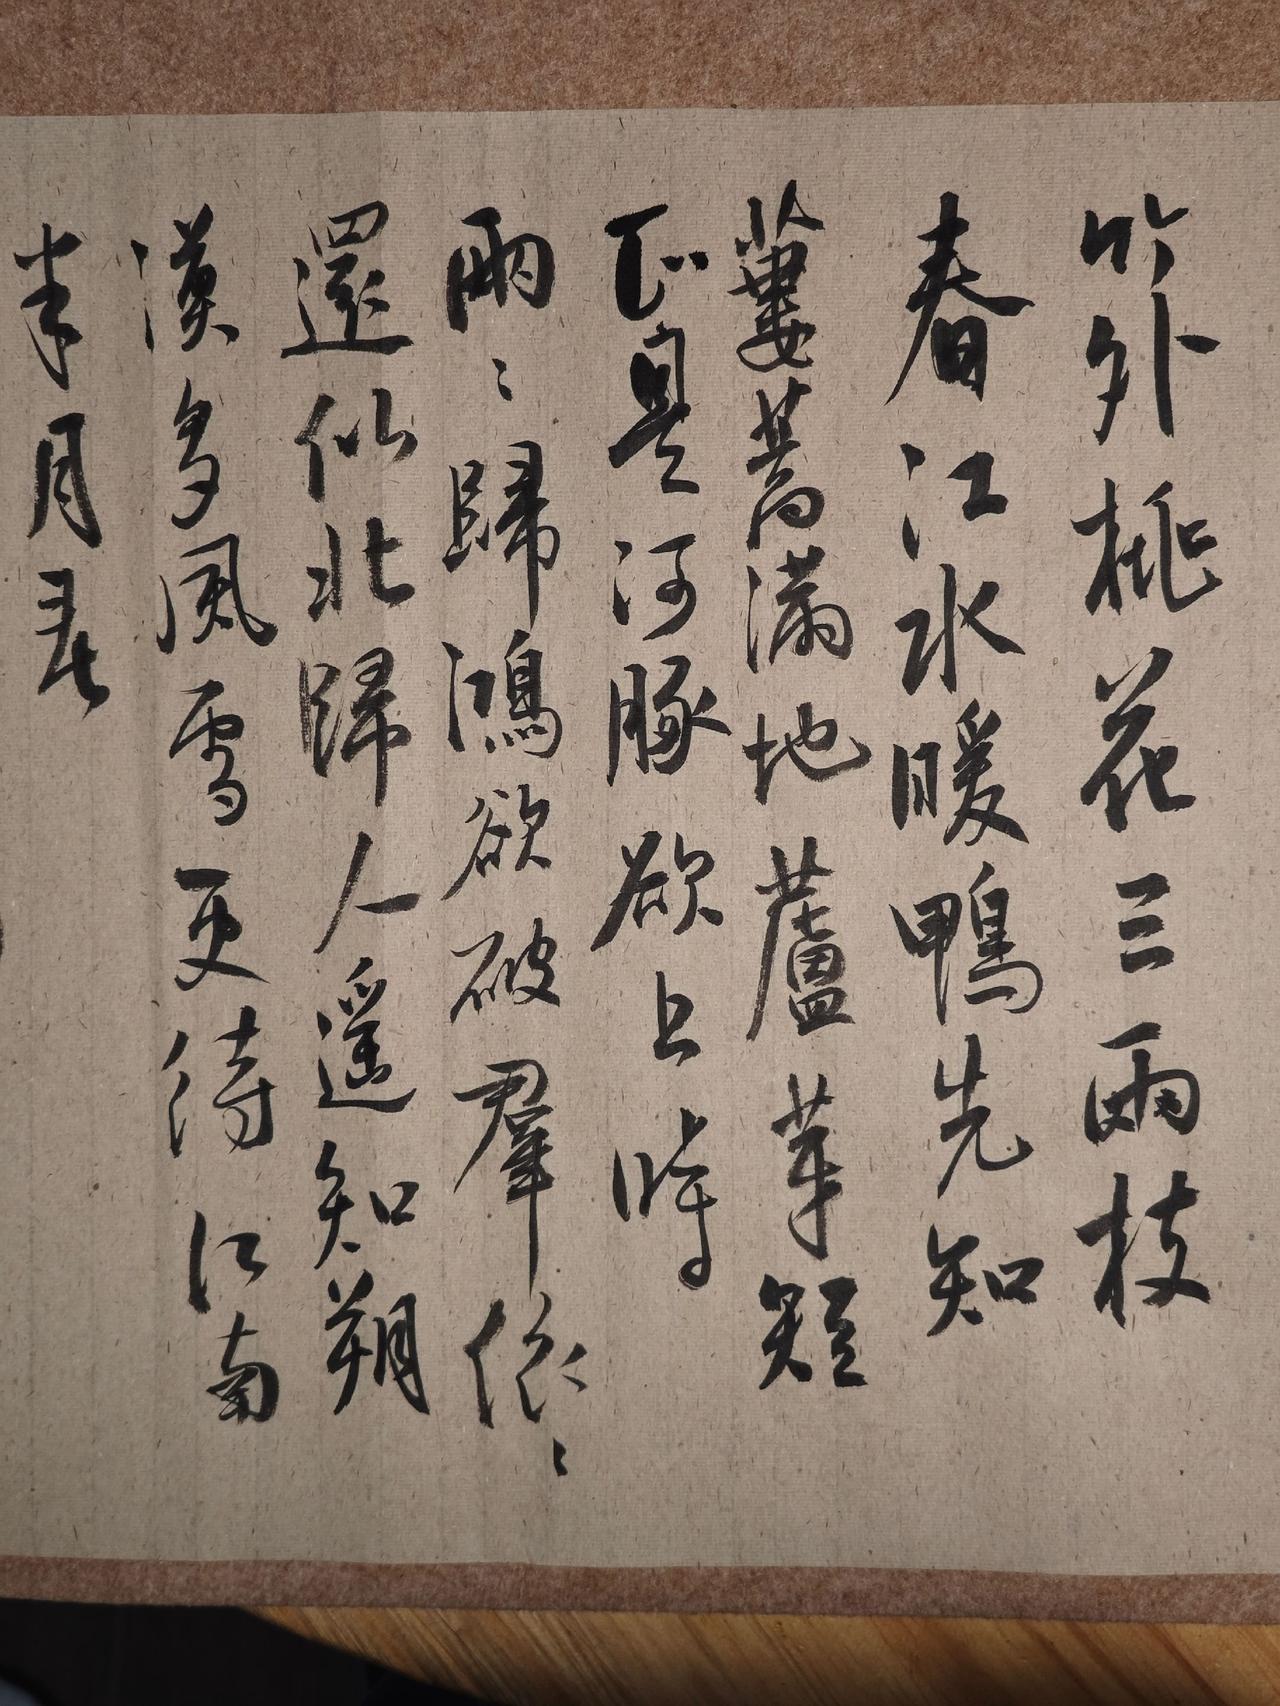 竹外桃花三兩枝
春江水暖鴨先知
蔞蒿滿地蘆芽短
正是河豚欲上時
兩〻歸鴻欲破羣依〻
還似北歸人遥知朔
漠多風雪更待江南
半月春